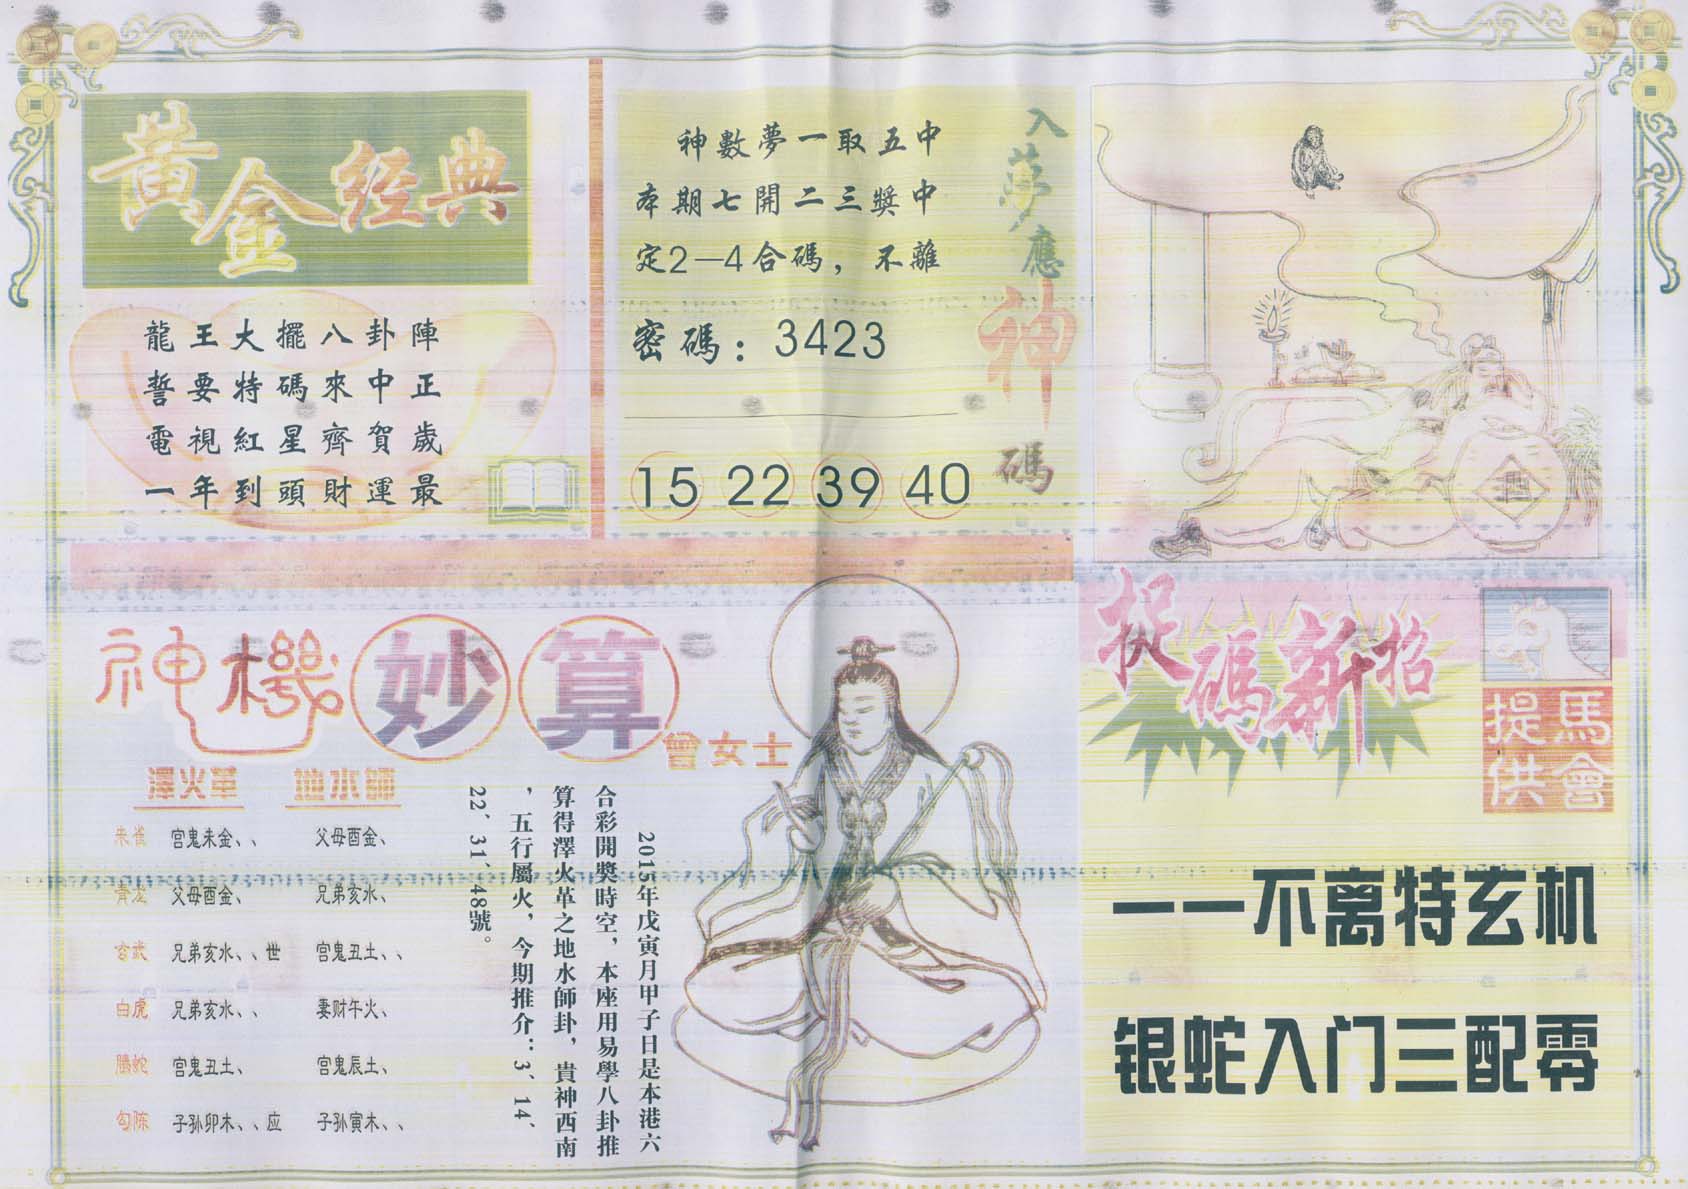 黃金经典
龍王大擺八卦陣
誓要特碼來中正
電視紅星齊賀歲
一年到頭財運最
入夢應神碼
神數夢一取五中
本期七開二三獎中
定2—4合碼，不離
密碼：3423
15 22 39 40
神機妙算
曾女士
澤火革 地水師
朱雀 宫鬼未金、、 父母酉金、
青龙 父母酉金、 兄弟亥水、
玄武 兄弟亥水、、世 宫鬼丑土、、
白虎 兄弟亥水、、 妻财午火、
騰蛇 宫鬼丑土、 宫鬼辰土、
勾陈 子孙卯木、、应 子孙寅木、、
2015年戊寅月甲子日是本港六
合彩開獎時空，本座用易學八卦推
算得澤火革之地水師卦，貴神西南
，五行屬火，今期推介：3、14、
22、31、48號。
捉碼新招
馬會提供
一一不离特玄机
银蛇入门三配零